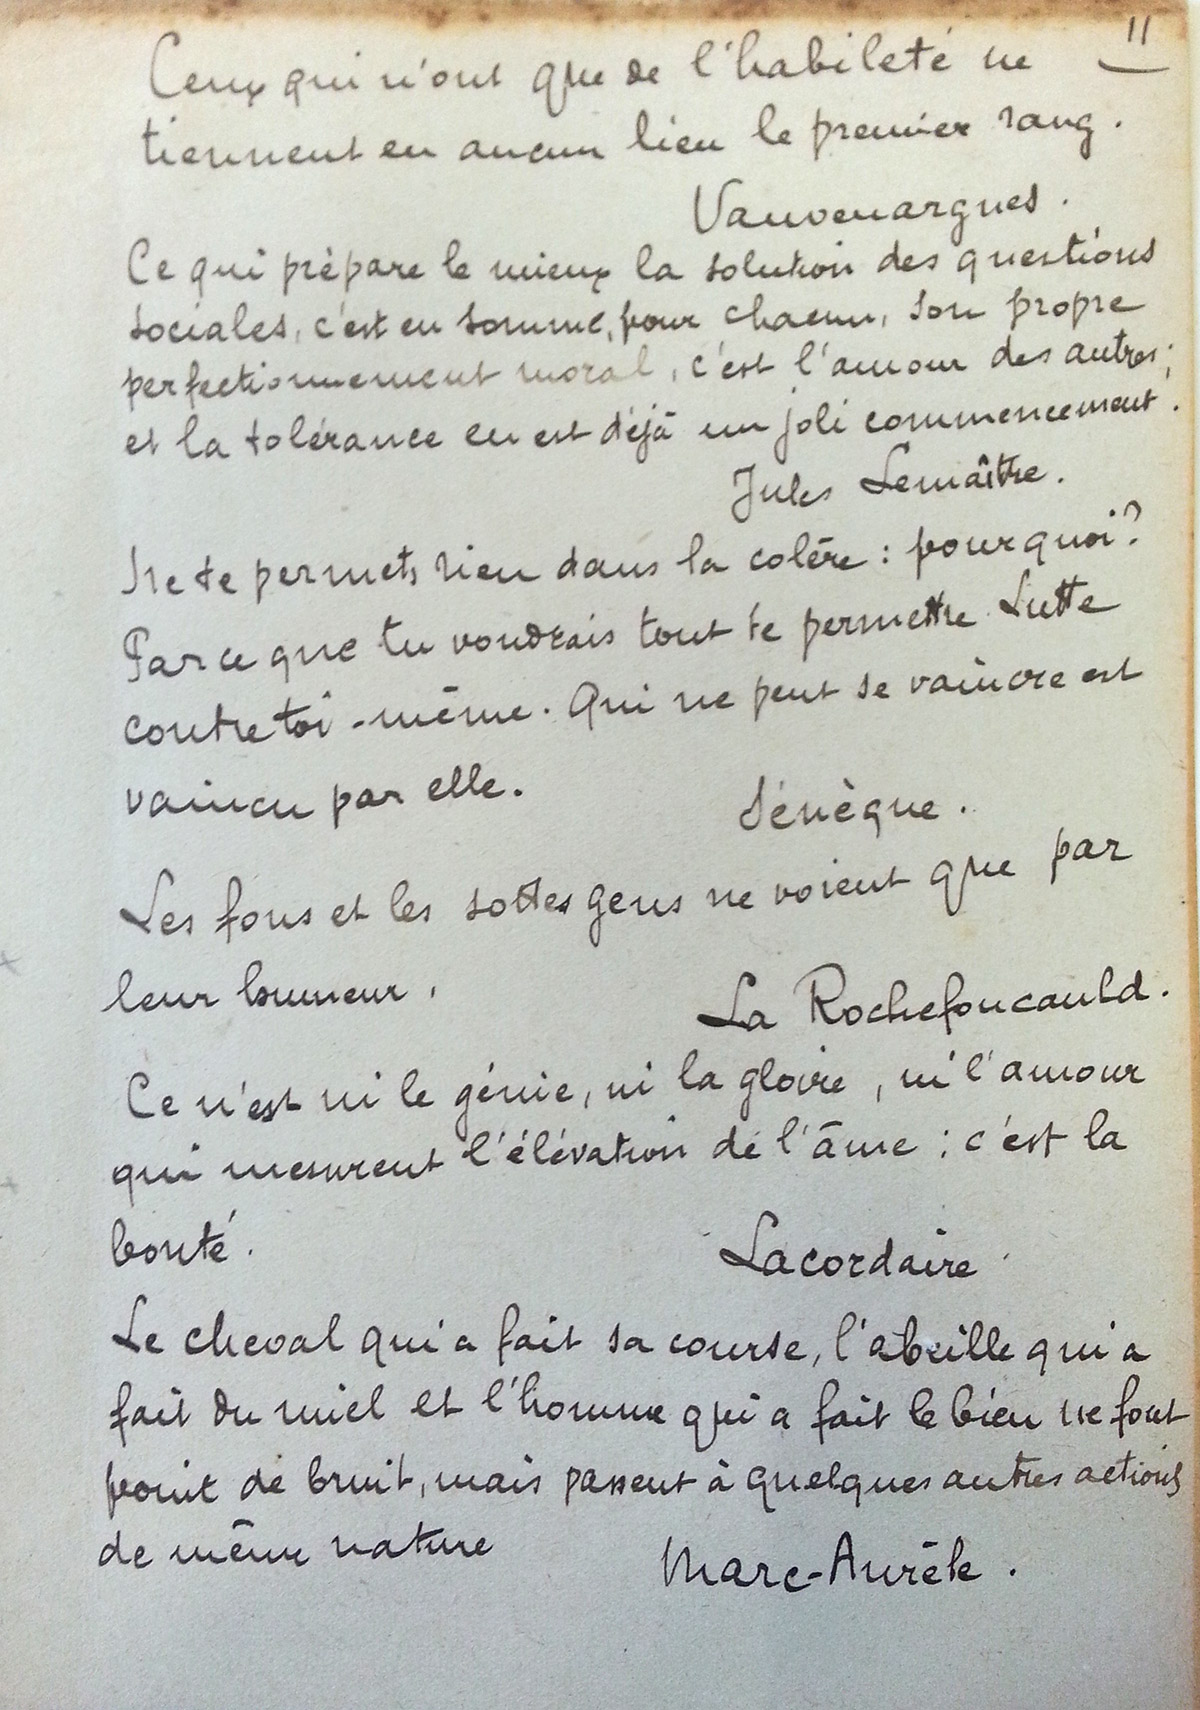 11
Ceux qui n'ont que de l'habileté ne
tiennent en aucun lieu le premier rang.
Vauvenargues.
Ce qui prépare le mieux la solution des questions
sociales, c'est en somme, pour chacun, son propre
perfectionnement moral, c'est l'amour des autres;
et la tolérance en est déjà un joli commencement.
Jules Lemaître.
Ne te permets rien dans la colère : pourquoi?
Parce que tu voudrais tout te permettre. Lutte
contre toi-même. Qui ne peut se vaincre est
vaincu par elle.
Sénèque.
Les fous et les sottes gens ne voient que par
leur humeur.
La Rochefoucauld.
Ce n'est ni le génie, ni la gloire, ni l'amour
qui mesurent l'élévation de l'âme : c'est la
bonté.
Lacordaire.
Le cheval qui a fait sa course, l'abeille qui a
fait du miel et l'homme qui a fait le bien ne font
point de bruit, mais passent à quelques autres actions
de même nature
Marc-Aurèle.